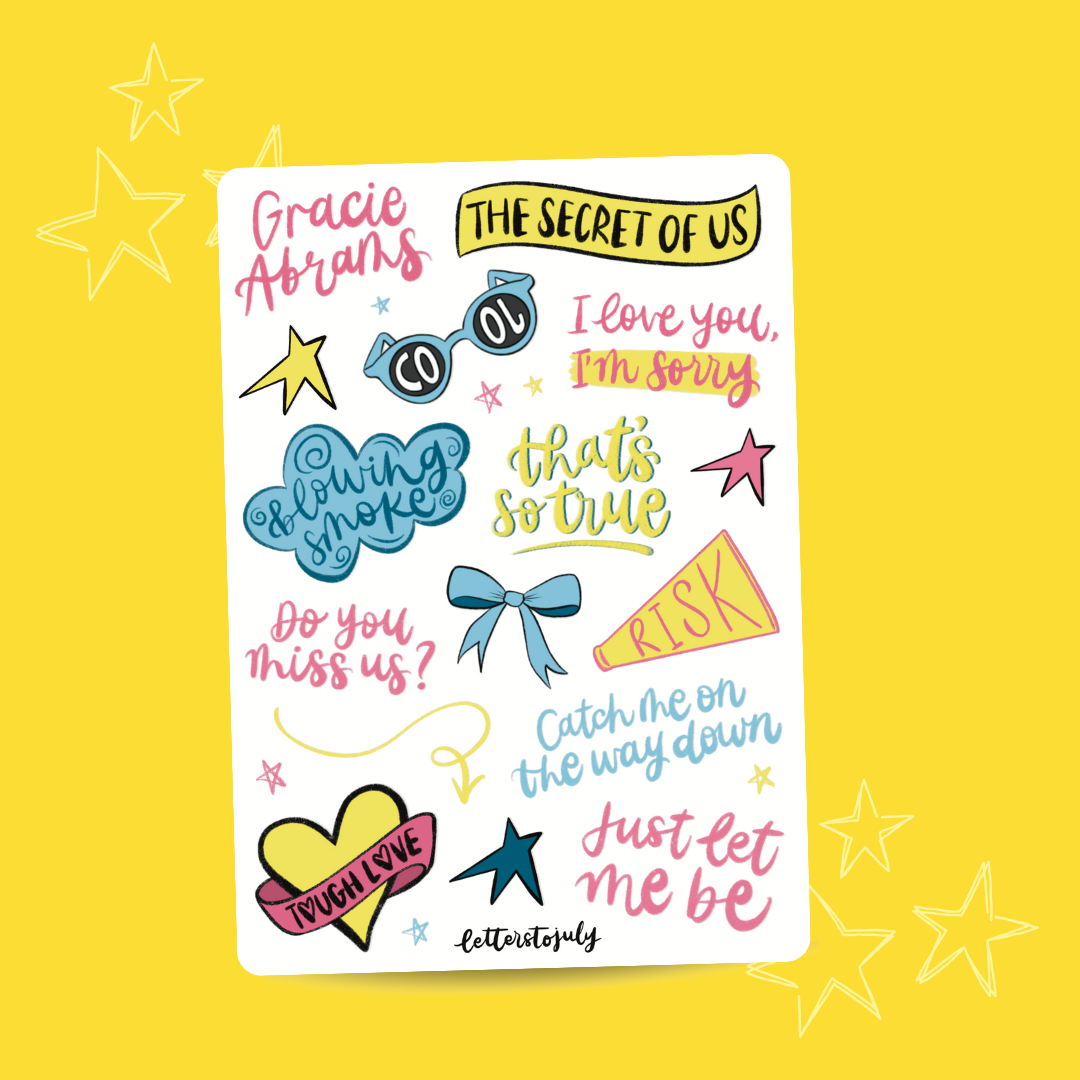 Gracie
Abrams
THE SECRET OF US
COOL
I love you,
I'm sorry
blowing
smoke
that's
so true
RISK
Do you
miss us?
Catch me on
the way down
TOUGH LOVE
Just let
me be
letterstojuly